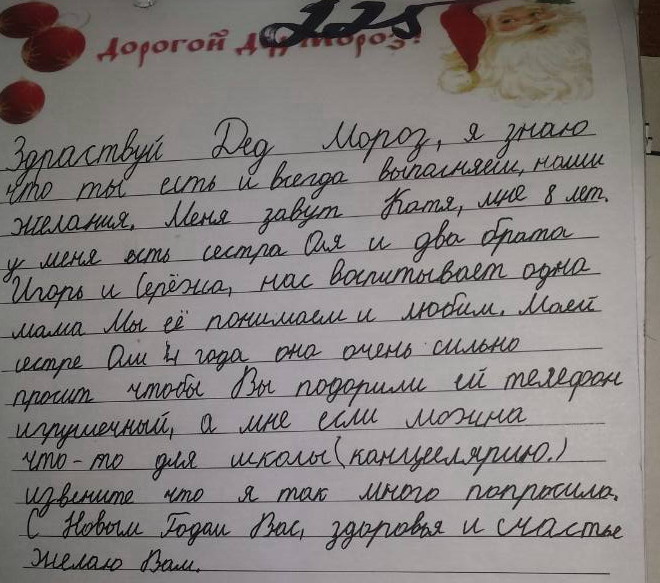 225
Дорогой Дед Мороз!
Здраствуй Дед Мороз, я знаю
что ты есть и всегда выпасняеш, наши
желания. Меня завут Катя, мне 8 лет.
у меня есть сестра Оля и два брата
Игорь и Серёжа, нас воспитывает одна
мама Мы её понимаем и любим. Маей
сестре Оли 4 года она очень сильно
просит чтобы Вы подарили ей телефон
игрушечный, а мне если можна
что-то для школы (канцелярию.)
извените что я так много попросила.
С Новым Годам Вас, здоровья и счастье
желаю Вам.